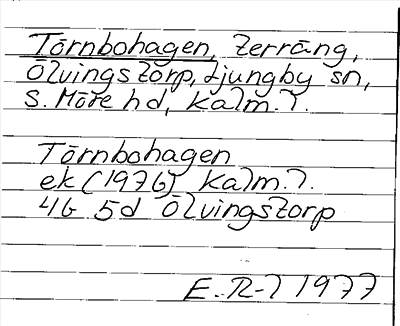 Törnbohagen, Terräng,
Ölvingstorp, Ljungby sn,
S. Möre hd, Kalm. l.
Törnbohagen
ek (1976) Kalm. l.
4G 5d Ölvingstorp
E. R-l 1977